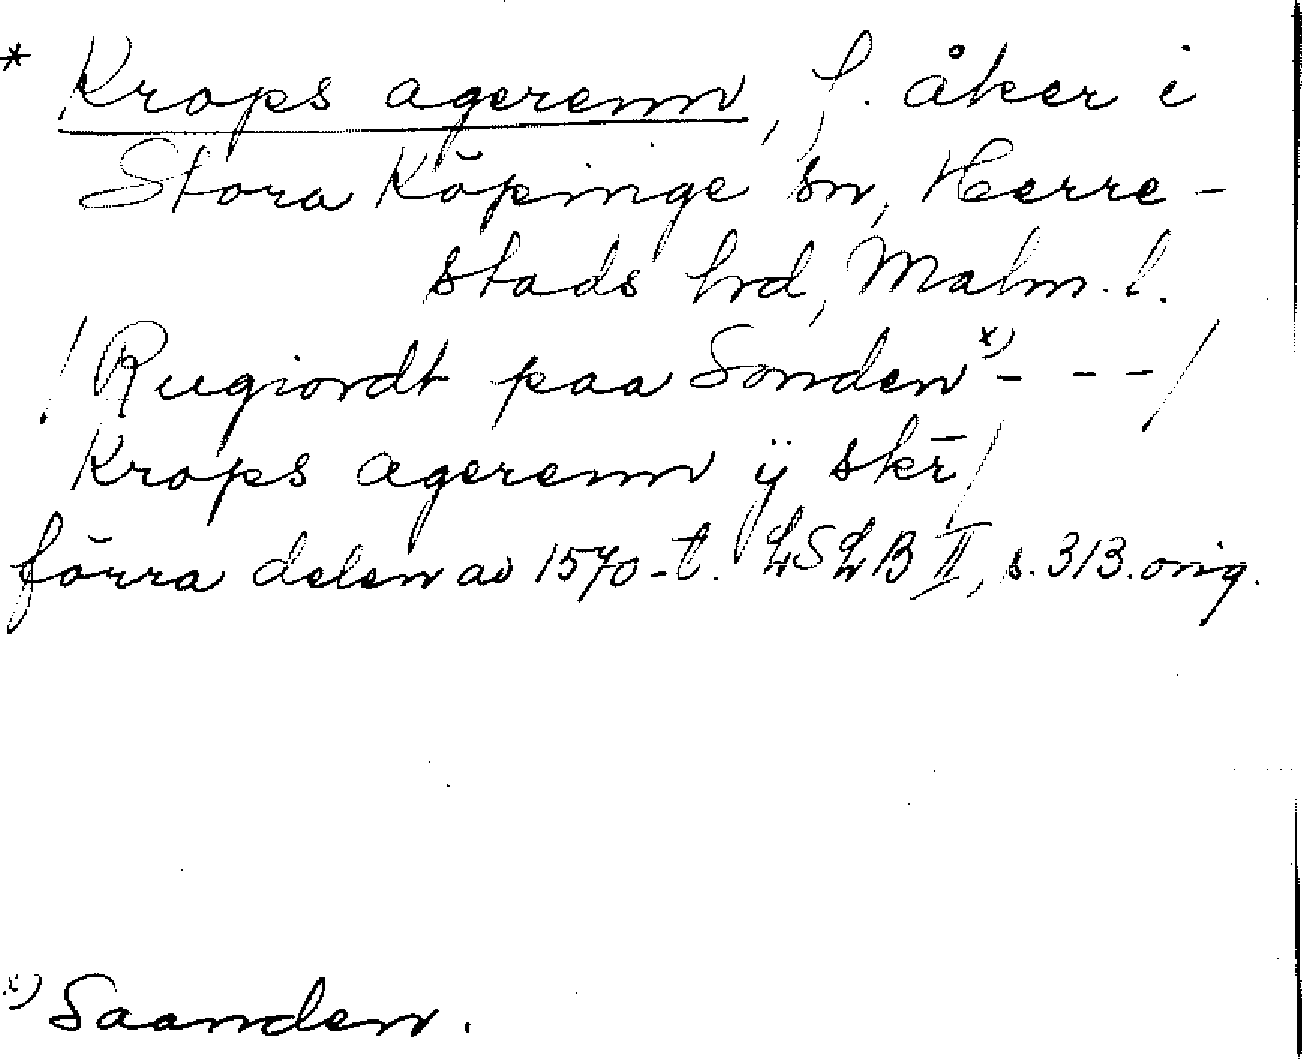 * Krops agerenn, f. åker i
Stora Köpinge sn, Herre-
stads hrd, Malm. l.
/ Rugiordt paa Sonden x) - - - /
Krops agerenn ÿ skī /
förra delen av 1570-t. LSLB II, s. 313. orig.
x) Saanden.